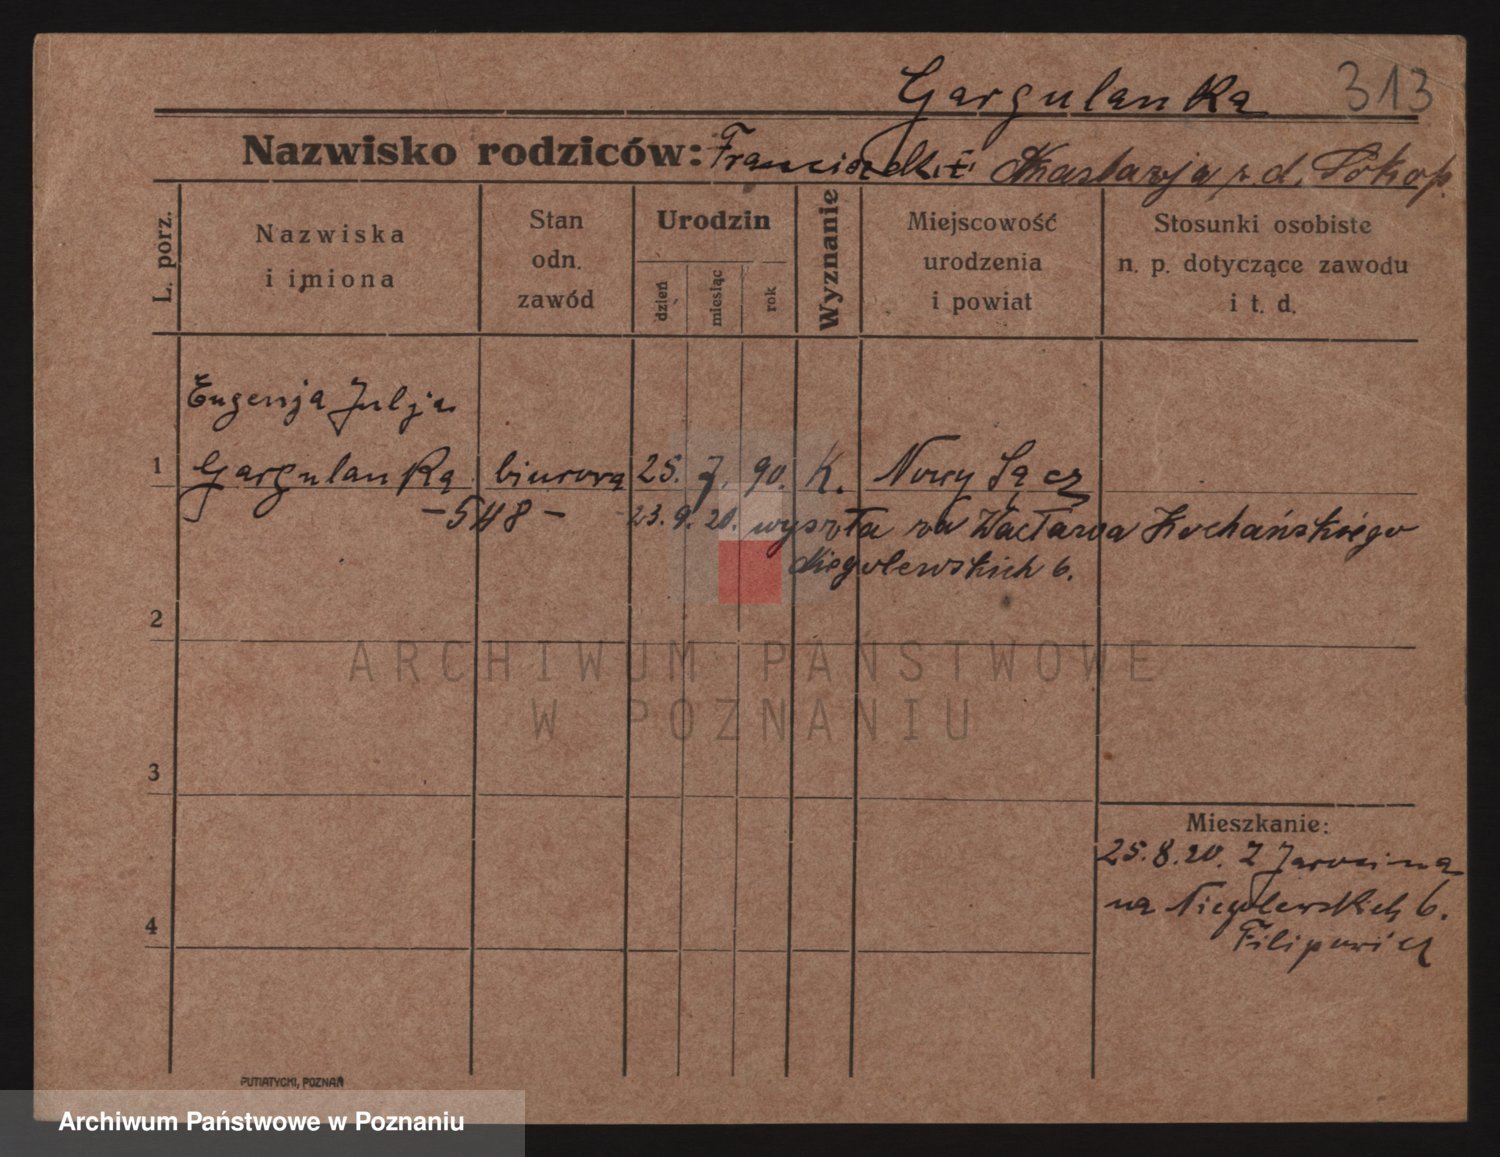 Gargulanka 313
Nazwisko rodziców: Franciszek i Anastazja r. d. Sokop.
L. porz.
Nazwiska
i imiona
Stan
odn.
zawód
Urodzin
dzień
miesiąc
rok
Wyznanie
Miejscowość
urodzenia
i powiat
Stosunki osobiste
n. p. dotyczące zawodu
i t. d.
Eugenja Julja
1 Gargulanką biurową 25. 7. 90. K. Nowy Sącz
23. 9. 20. wyszła za Wacława Kochańskiego
Niegolewskich 6.
2
ARCHIWUM PAŃSTWOWE
W POZNANIU
3
Mieszkanie:
25. 8. 20. Z Jarocina
na Niegolewskich 6.
4
Filipowicz
PUTIATYCKI, POZNAŃ
Archiwum Państwowe w Poznaniu